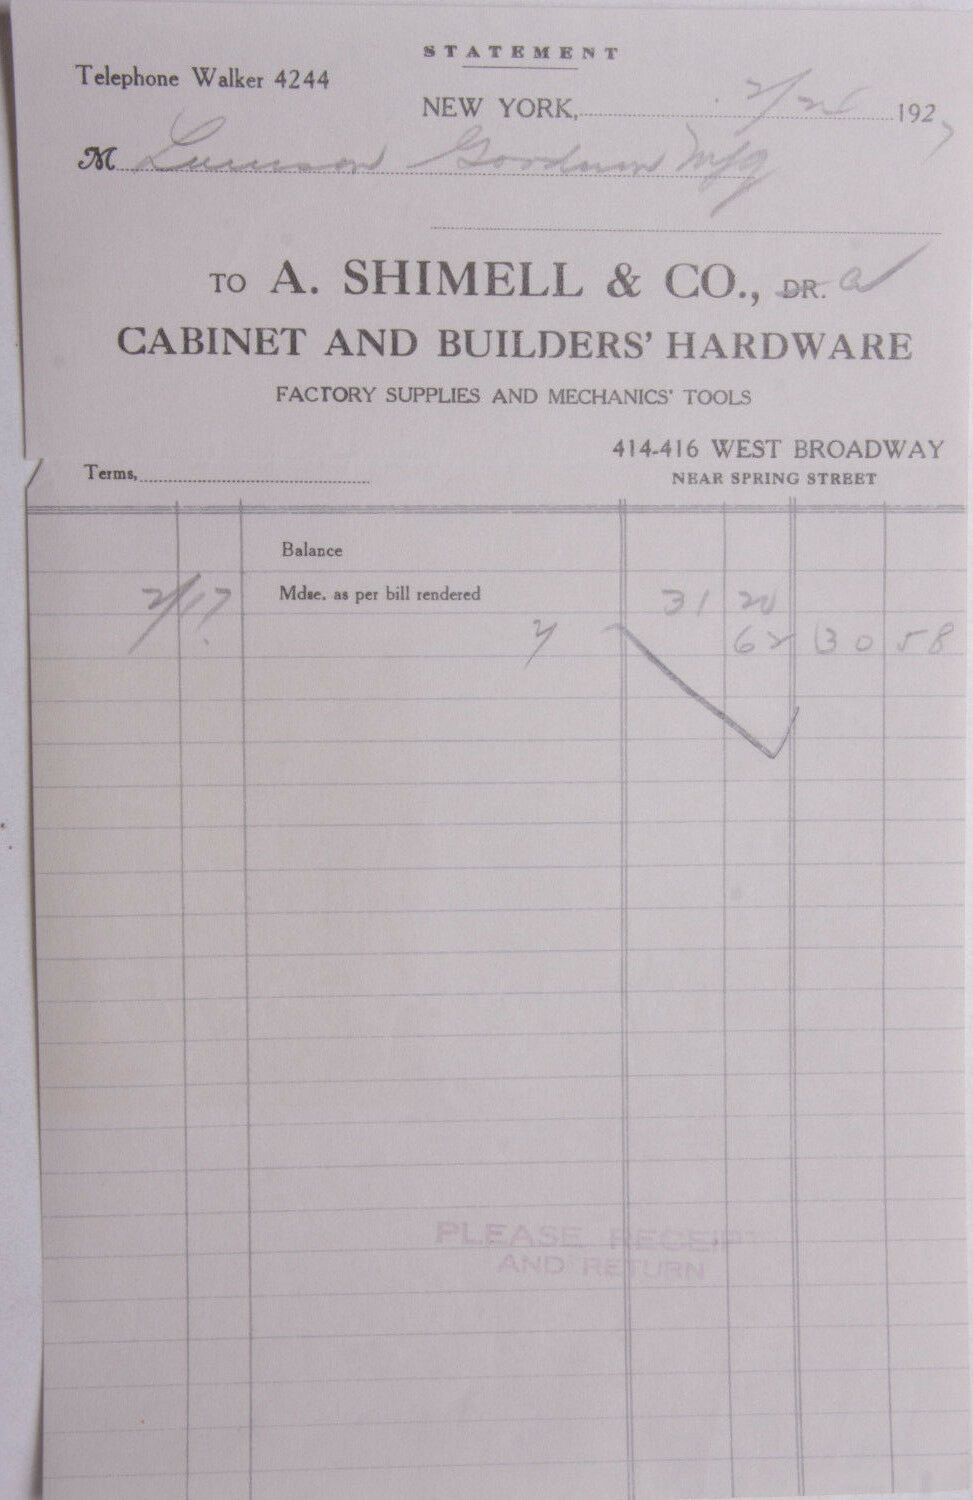 STATEMENT
Telephone Walker 4244
NEW YORK, 2/25 192
M Goodman Mfg
TO A. SHIMELL & CO., DR.
CABINET AND BUILDERS' HARDWARE
FACTORY SUPPLIES AND MECHANICS' TOOLS
414-416 WEST BROADWAY
Terms, NEAR SPRING STREET
Balance
2/17 Mdse. as per bill rendered 31 20
62 30 58
PLEASE RECEIPT
AND RETURN